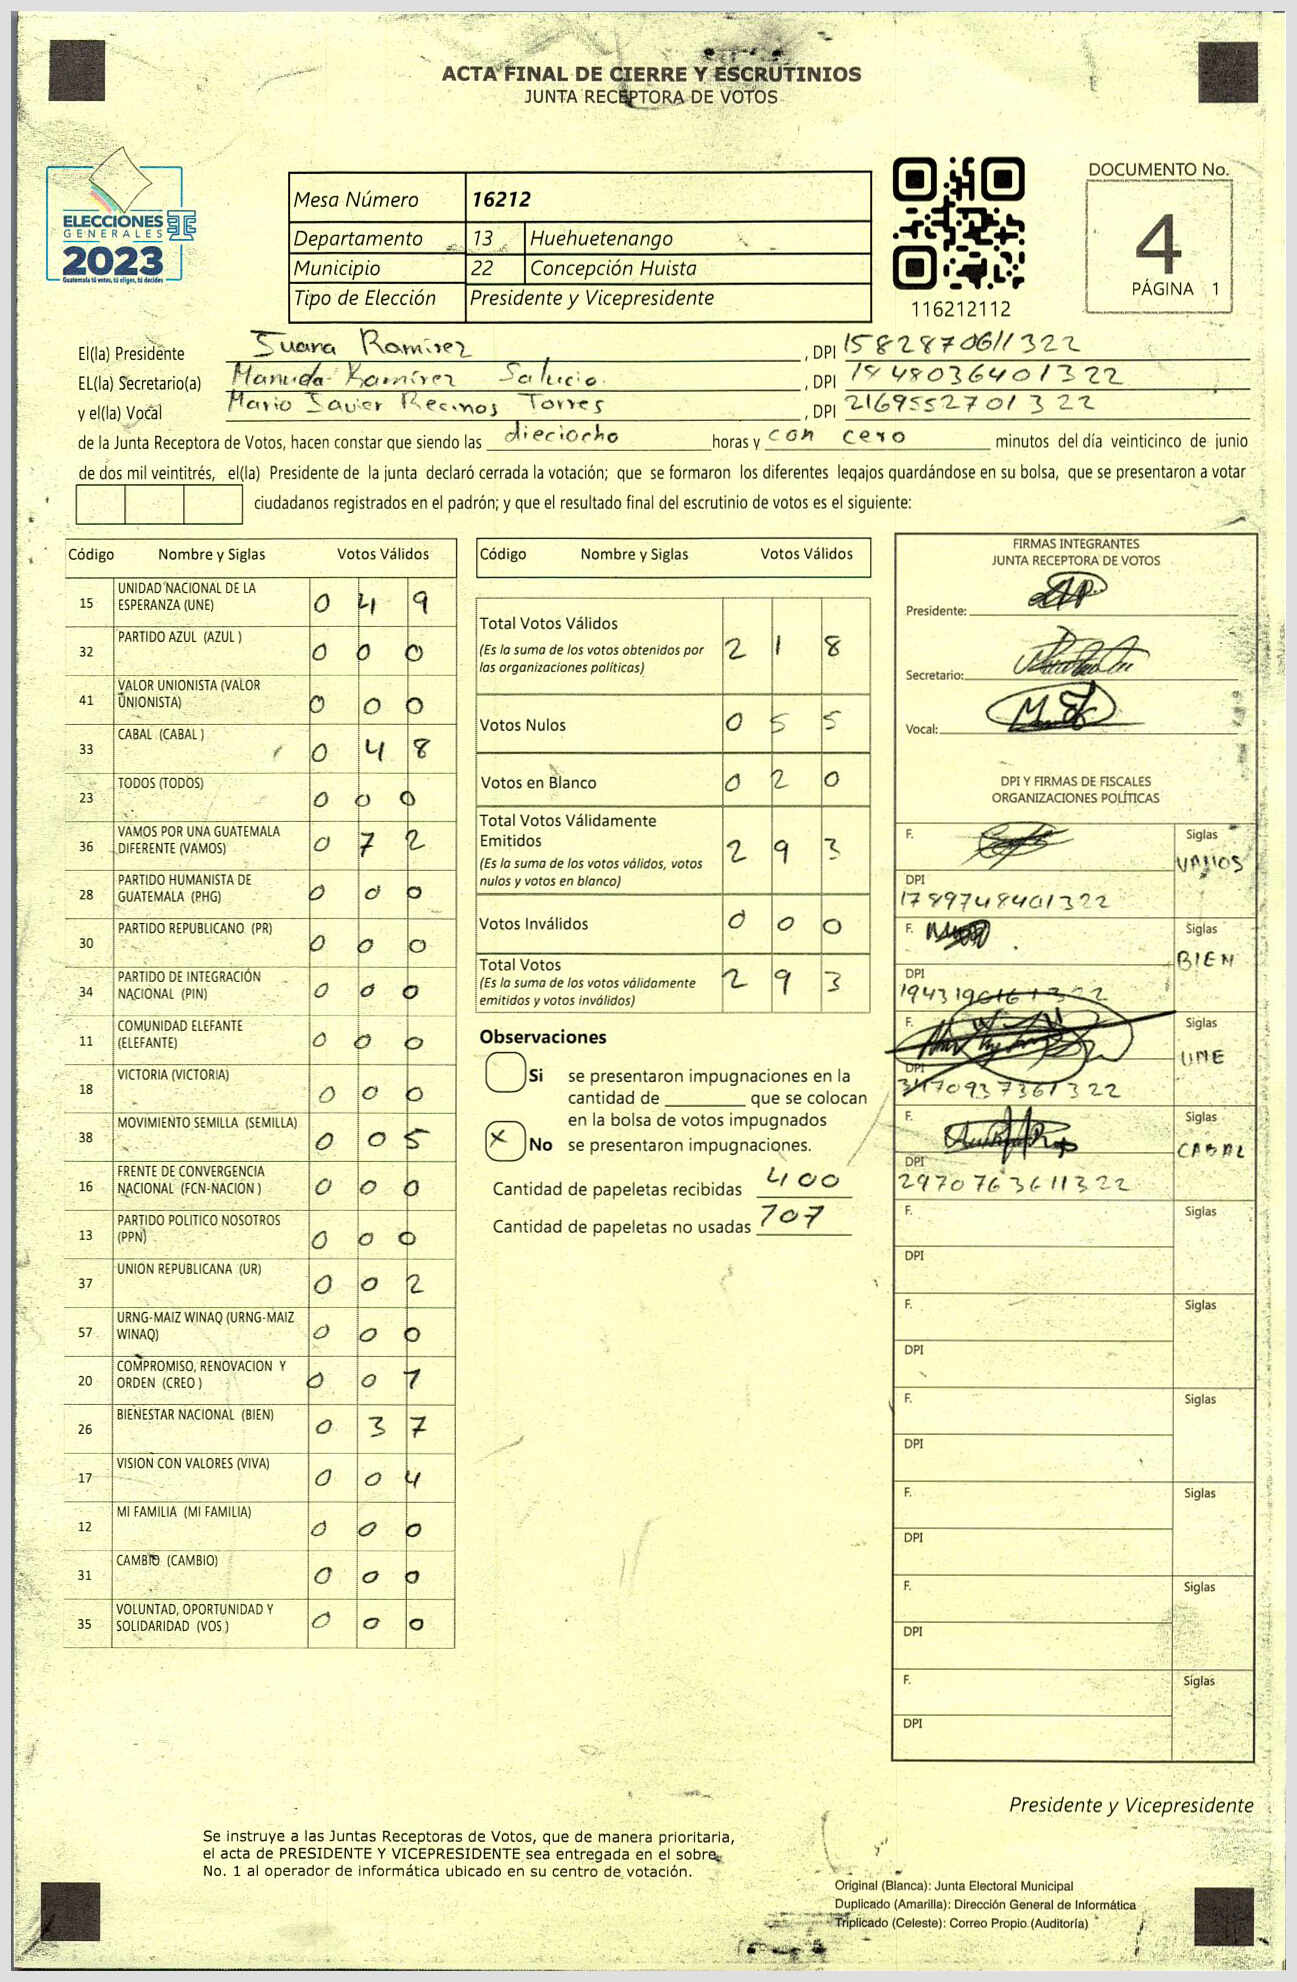 ACTA FINAL DE CIERRE Y ESCRUTINIOS
JUNTA RECEPTORA DE VOTOS
ELECCIONES
GENERALES
2023
Guatemala tú votes, tú eliges, tú decides
Mesa Número 16212
Departamento 13 Huehuetenango
Municipio 22 Concepción Huista
Tipo de Elección Presidente y Vicepresidente
116212112
DOCUMENTO No.
4
PÁGINA 1
El(la) Presidente Juana Ramirez , DPI 1582870611322
EL(la) Secretario(a) Ramírez , DPI 1848036401322
y el(la) Vocal Mario Javier Recinos Torres , DPI 2169552701322
de la Junta Receptora de Votos, hacen constar que siendo las dieciocho horas y con cero minutos del día veinticinco de junio
de dos mil veintitrés, el(la) Presidente de la junta declaró cerrada la votación; que se formaron los diferentes legajos guardándose en su bolsa, que se presentaron a votar
ciudadanos registrados en el padrón; y que el resultado final del escrutinio de votos es el siguiente:
Código Nombre y Siglas Votos Válidos
15 UNIDAD NACIONAL DE LA ESPERANZA (UNE) 0 4 9
32 PARTIDO AZUL (AZUL ) 0 0 0
41 VALOR UNIONISTA (VALOR UNIONISTA) 0 0 0
33 CABAL (CABAL ) 0 4 8
23 TODOS (TODOS) 0 0 0
36 VAMOS POR UNA GUATEMALA DIFERENTE (VAMOS) 0 7 2
28 PARTIDO HUMANISTA DE GUATEMALA (PHG) 0 0 0
30 PARTIDO REPUBLICANO (PR) 0 0 0
34 PARTIDO DE INTEGRACIÓN NACIONAL (PIN) 0 0 0
11 COMUNIDAD ELEFANTE (ELEFANTE) 0 0 0
18 VICTORIA (VICTORIA) 0 0 0
38 MOVIMIENTO SEMILLA (SEMILLA) 0 0 5
16 FRENTE DE CONVERGENCIA NACIONAL (FCN-NACION ) 0 0 0
13 PARTIDO POLITICO NOSOTROS (PPN) 0 0 0
37 UNION REPUBLICANA (UR) 0 0 2
57 URNG-MAIZ WINAQ (URNG-MAIZ WINAQ) 0 0 0
20 COMPROMISO, RENOVACION Y ORDEN (CREO ) 0 0 1
26 BIENESTAR NACIONAL (BIEN) 0 3 7
17 VISION CON VALORES (VIVA) 0 0 4
12 MI FAMILIA (MI FAMILIA) 0 0 0
31 CAMBIO (CAMBIO) 0 0 0
35 VOLUNTAD, OPORTUNIDAD Y SOLIDARIDAD (VOS ) 0 0 0
Código Nombre y Siglas Votos Válidos
Total Votos Válidos 2 1 8
(Es la suma de los votos obtenidos por
las organizaciones políticas)
Votos Nulos 0 5 5
Votos en Blanco 0 2 0
Total Votos Válidamente
Emitidos 2 9 3
(Es la suma de los votos válidos, votos
nulos y votos en blanco)
Votos Inválidos 0 0 0
Total Votos 2 9 3
(Es la suma de los votos válidamente
emitidos y votos inválidos)
Observaciones
Si se presentaron impugnaciones en la
cantidad de ________ que se colocan
en la bolsa de votos impugnados
X No se presentaron impugnaciones.
Cantidad de papeletas recibidas 400
Cantidad de papeletas no usadas 707
FIRMAS INTEGRANTES
JUNTA RECEPTORA DE VOTOS
Presidente:
Secretario:
Vocal:
DPI Y FIRMAS DE FISCALES
ORGANIZACIONES POLÍTICAS
F. Siglas VAMOS
DPI
1789748401322
F. Siglas BIEN
DPI
F. Siglas UNE
DPI
F. Siglas CABAL
DPI
2970763611322
F. Siglas
DPI
F. Siglas
DPI
F. Siglas
DPI
F. Siglas
DPI
F. Siglas
DPI
F. Siglas
DPI
Presidente y Vicepresidente
Se instruye a las Juntas Receptoras de Votos, que de manera prioritaria,
el acta de PRESIDENTE Y VICEPRESIDENTE sea entregada en el sobre
No. 1 al operador de informática ubicado en su centro de votación.
Original (Blanca): Junta Electoral Municipal
Duplicado (Amarilla): Dirección General de Informática
Triplicado (Celeste): Correo Propio (Auditoría)